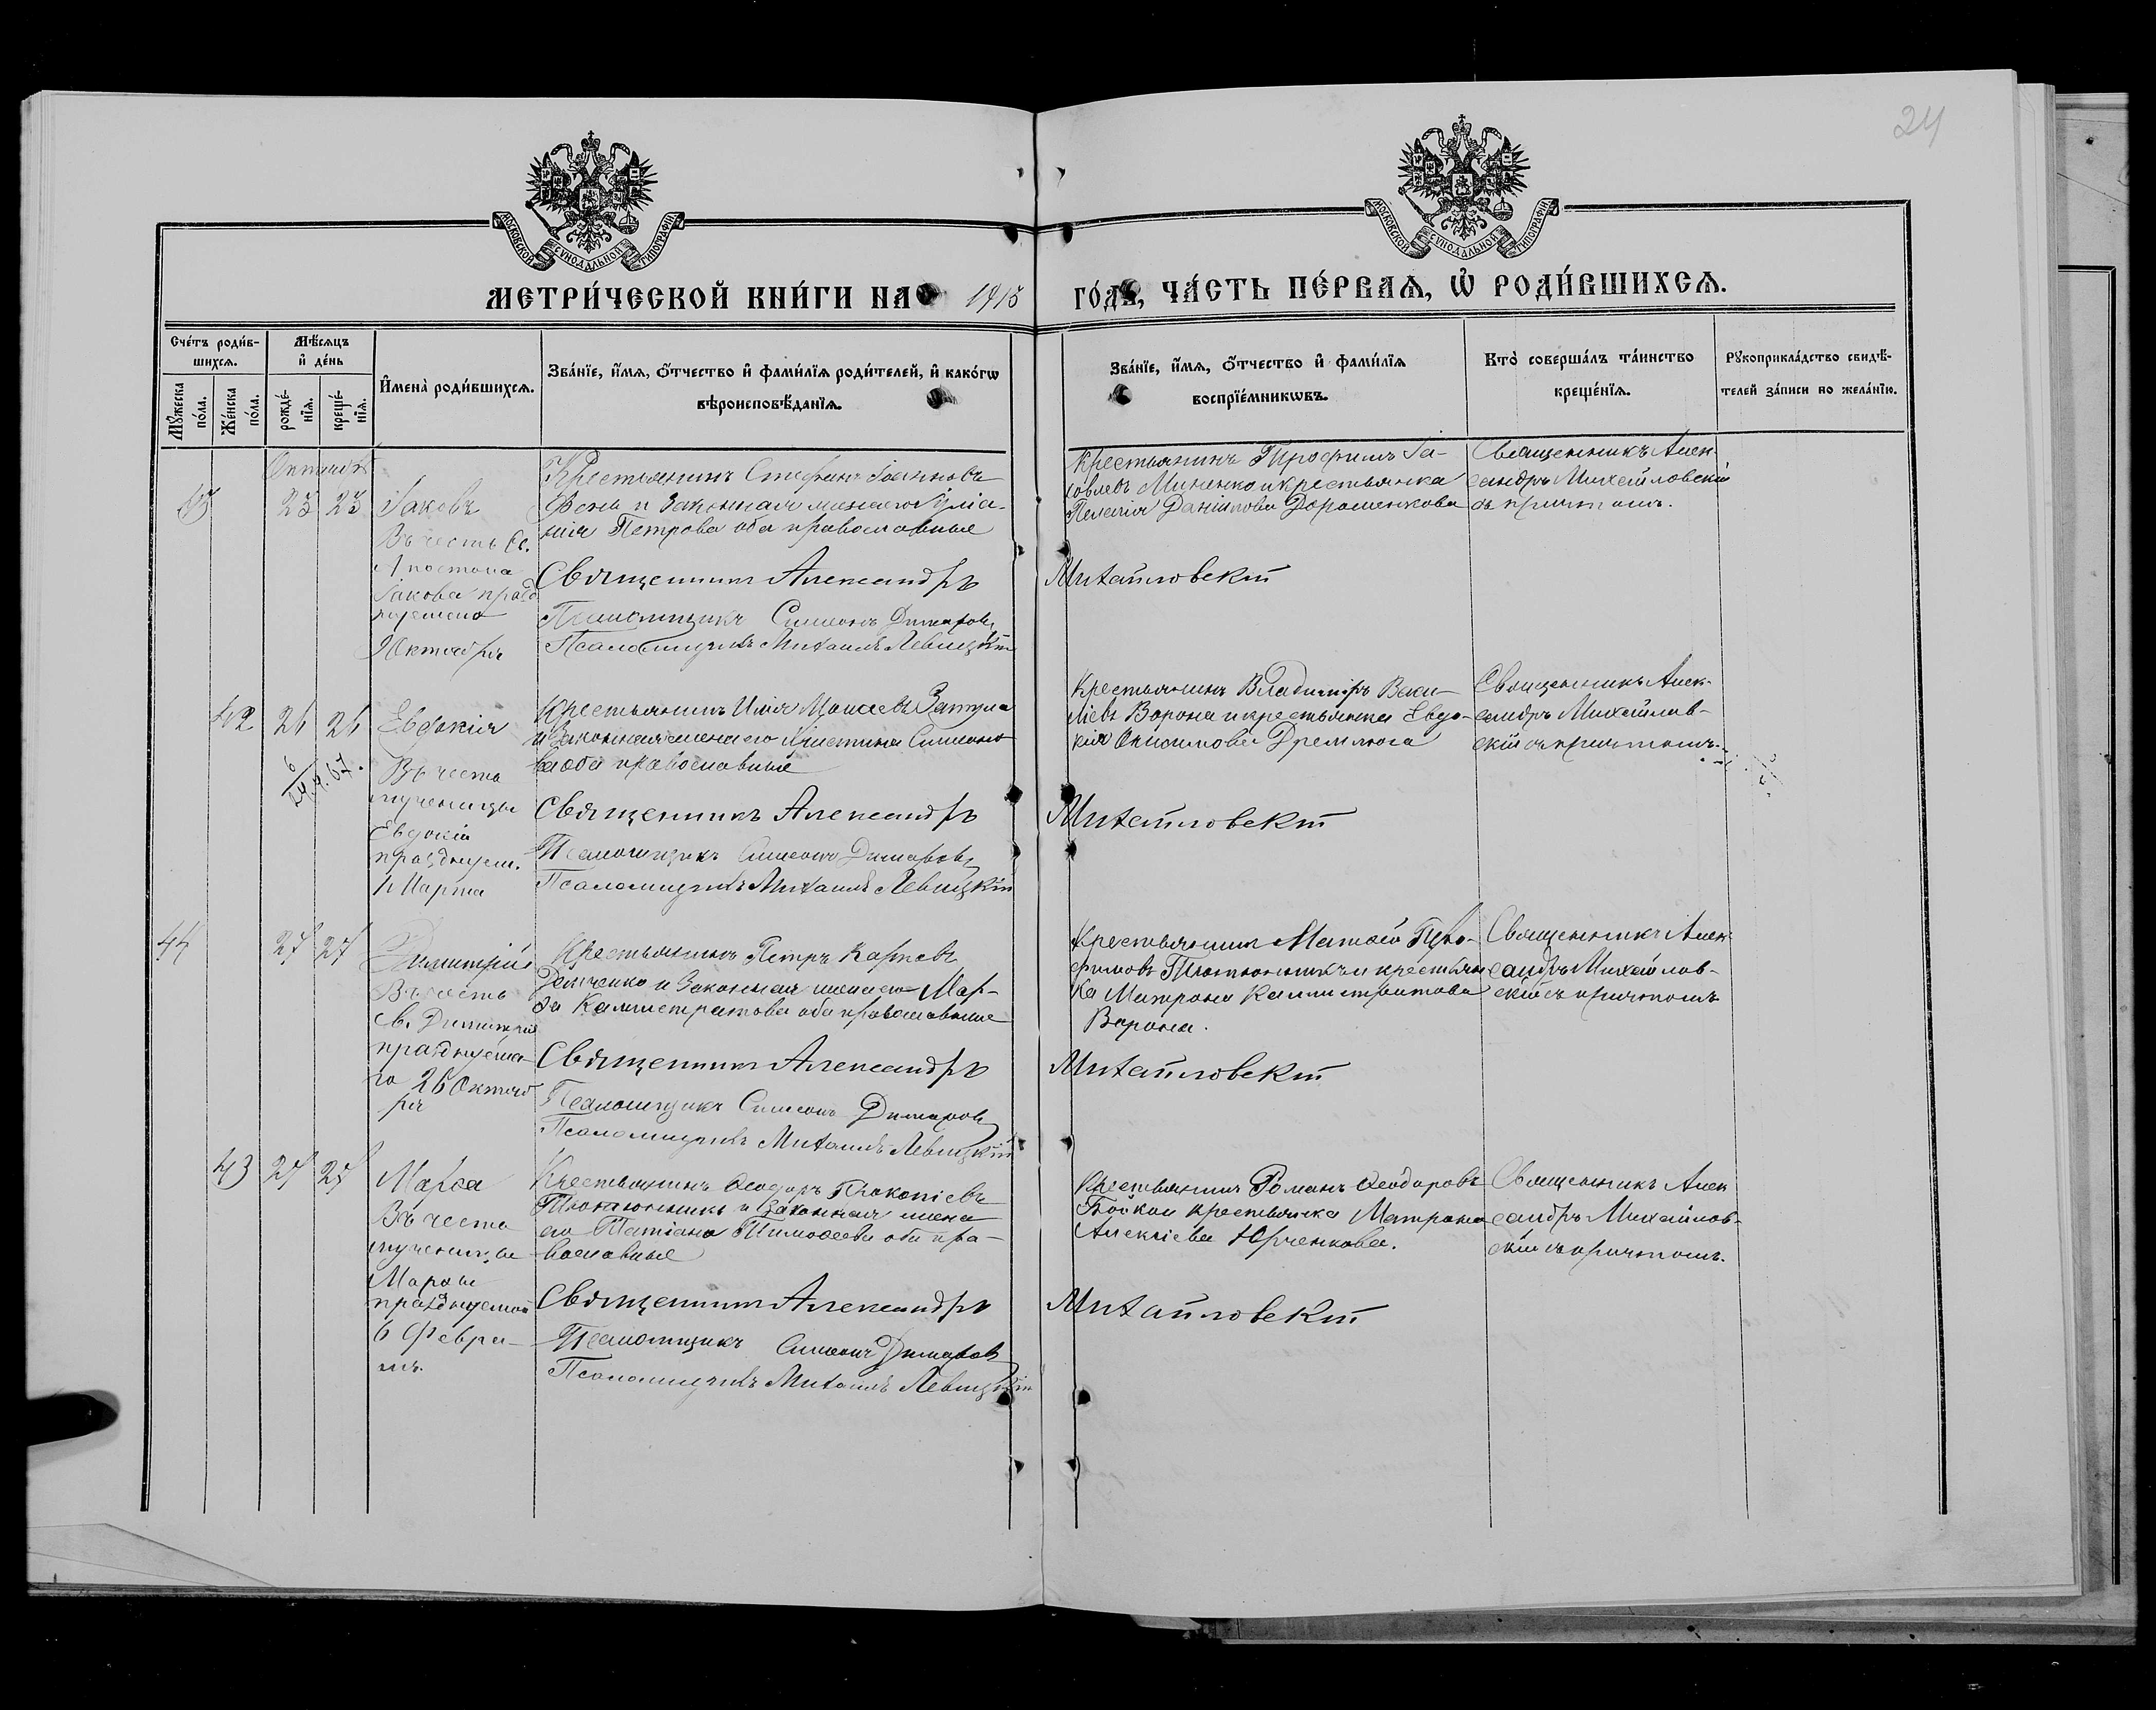 24
МОСКОВСКОЙ СѴНОДАЛЬНОЙ ТИПОГРАФІИ
МОСКОВСКОЙ СѴНОДАЛЬНОЙ ТИПОГРАФІИ
МЕТРИ́ЧЕСКОЙ КНИ́ГИ НА 1915
ГО́ДЪ, ЧА́СТЬ ПЕ́РВАѦ, Ѡ҆ РОДИ́ВШИХСѦ.
Сче́тъ роди́в-
шихсѧ.
Мѣ́сѧцъ
и҆ де́нь
Мꙋ́жеска
по́ла.
Же́нска
по́ла.
рожде́-
нїѧ.
креще́-
нїѧ.
И҆мена̀ роди́вшихсѧ.
Зва́нїе, и҆́мѧ, ѻ҆́тчество и҆ фами́лїѧ роди́телей, и҆ како́гѡ
вѣроисповѣ́данїѧ.
Зва́нїе, и҆́мѧ, ѻ҆́тчество и҆ фами́лїѧ
воспрїе́мникѡвъ.
Кто̀ соверша́лъ та́инство
креще́нїѧ.
Рꙋкоприкла́дство свидѣ́-
телей за́писи по жела́нїю.
Октября
43 23 23 Іаковъ
Въ честь Св.
Апостола
Іакова празд
нуемаго
9 Октября
Крестьянинъ Стефанъ Іоанновъ
и законная жена его Іуліа-
нія Петрова оба православные
Священникъ Александръ Михайловскій
Псаломщикъ Симеонъ Димаровъ
Псаломщикъ Михаилъ Левицкій
Крестьянинъ Трофимъ Іа-
ковлевъ Миненко и крестьянка
Пелагія Даніилова Дорошенкова
Священникъ Алек
сандръ Михайловскій
съ причтомъ.
42 26 26 Евдокія
6
24.4.67.
Въ честь
мученицы
Евдокіи
празднуем.
1 Марта
Крестьянинъ Илія Моисеевъ
и законная жена его Христина Симеоно
ва оба православные
Священникъ Александръ Михайловскій
Псаломщикъ Симеонъ Димаровъ
Псаломщикъ Михаилъ Левицкій
Крестьянинъ Владиміръ Васи-
ліевъ Ворона и крестьянка Евдо-
кія Онисимова Дремлюга
Священникъ Алек-
сандръ Михайлов-
скій съ причтомъ.
44 27 27 Димитрій
Въ честь
Св. Димитрія
празднуема
го 26 Октяб
ря
Крестьянинъ Петръ Карповъ
и законная жена его Мар-
ѳа Каллистратова оба православные
Священникъ Александръ Михайловскій
Псаломщикъ Симеонъ Димаровъ
Псаломщикъ Михаилъ Левицкій
Крестьянинъ Матѳей
Тютюнникъ и крестьян
ка Матрона Каллистратова
Ворона.
Священникъ Алек
сандръ Михайлов-
скій съ причтомъ
43 27 27 Марѳа
Въ честь
мученицы
Марѳы
празднуемой
6 Февра-
ля.
Крестьянинъ Ѳеодоръ Прокопіевъ
Тютюнникъ и законная жена
его Татіана Тимоѳеева оба пра-
вославные
Священникъ Александръ Михайловскій
Псаломщикъ Симеонъ Димаровъ
Псаломщикъ Михаилъ Левицкій
Крестьянинъ Романъ Ѳеодоровъ
Бойко и крестьянка Матрона
Алексіева Юрченкова.
Священникъ Алек
сандръ Михайлов-
скій съ причтомъ.